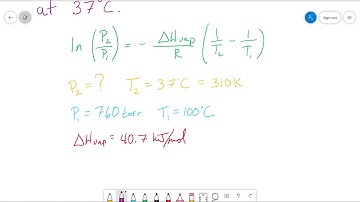 at 37°C.
ln (P₂/P₁) = - ΔHvap/R (1/T₂ - 1/T₁)
P₂ = ? T₂ = 37°C = 310K
P₁ = 760torr T₁ = 100°C
ΔHvap = 40.7 kJ/mol